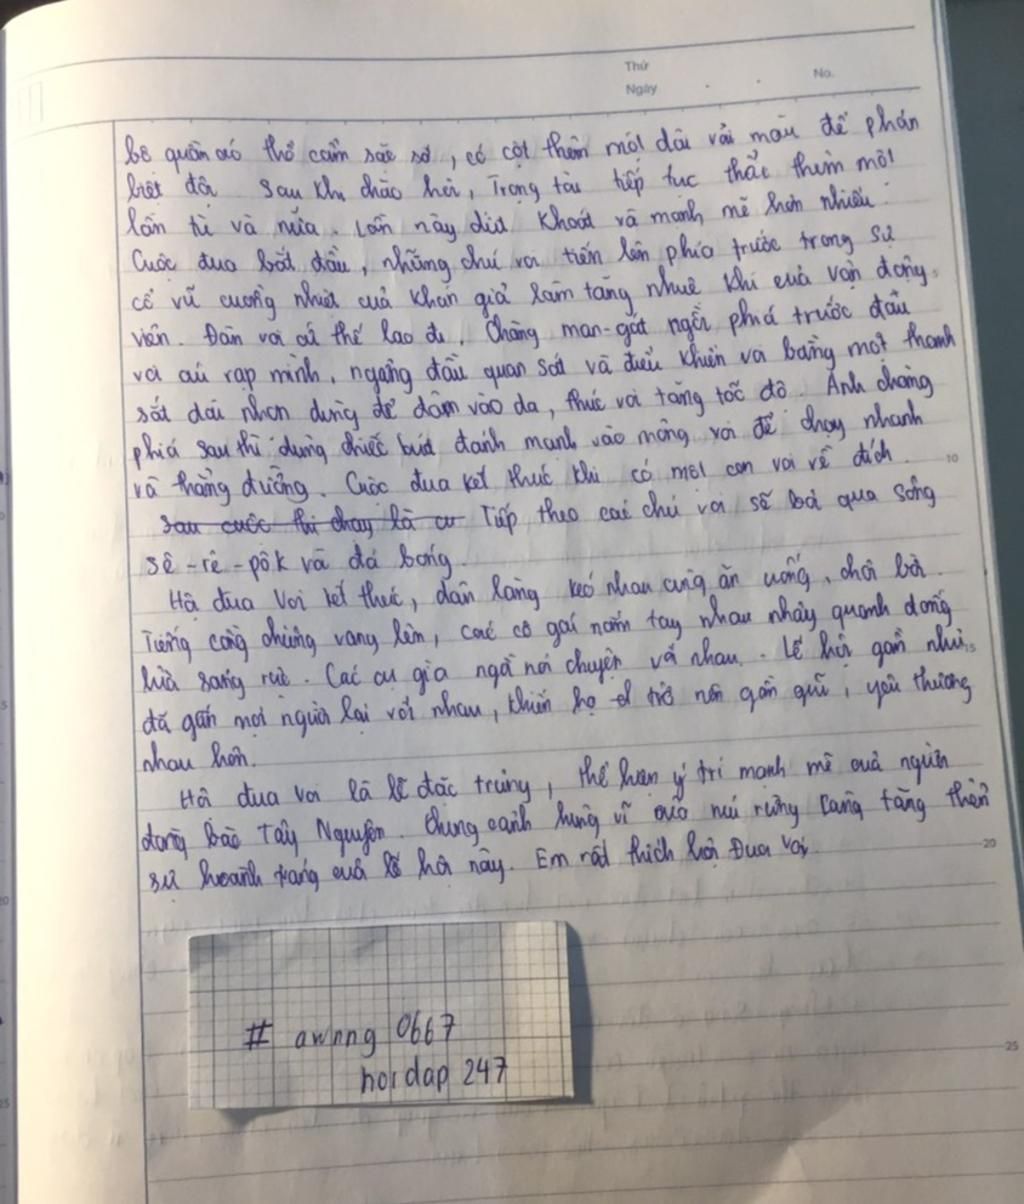 Thứ
Ngày
No.
bộ quần áo thổ cẩm sặc sỡ, có cột thêm một dải vải màu để phân
biệt đội. Sau khi chào hỏi, Trọng tài tiếp tục thổi thêm một
lần tù và nữa. Lần này dứt khoát và mạnh mẽ hơn nhiều.
Cuộc đua bắt đầu, những chú voi tiến lên phía trước trong sự
cổ vũ cuồng nhiệt của khán giả làm tăng nhuệ khí của vận động
viên. Đàn voi cứ thế lao đi. Chàng man-gát ngồi phía trước đầu
voi cúi rạp mình, ngẩng đầu quan sát và điều khiển voi bằng một thanh
sắt dài nhọn dùng để đâm vào da, thúc voi tăng tốc độ. Anh chàng
phía sau thì dùng chiếc búa đánh mạnh vào mông voi để chạy nhanh
và thẳng đường. Cuộc đua kết thúc khi có một con voi về đích.
10
sau cuộc thi chạy là cu Tiếp theo các chú voi sẽ bơi qua sông
Sê-rê-pôk và đá bóng.
Hội đua voi kết thúc, dân làng kéo nhau cùng ăn uống, chơi bời.
Tiếng cồng chiêng vang lên, các cô gái nắm tay nhau nhảy quanh đống
lửa sáng rực. Các cụ già ngồi nói chuyện với nhau. Lễ hội gần như
15
đã gắn mọi người lại với nhau, khiến họ trở nên gần gũi, yêu thương
nhau hơn.
Hội đua voi là lễ đặc trưng, thể hiện ý trí mạnh mẽ của người
đồng bào Tây Nguyên. Khung cảnh hùng vĩ của núi rừng càng tăng thêm
20
sự hoành tráng của lễ hội này. Em rất thích hội Đua voi.
# awnng 0667
hoidap 247
25